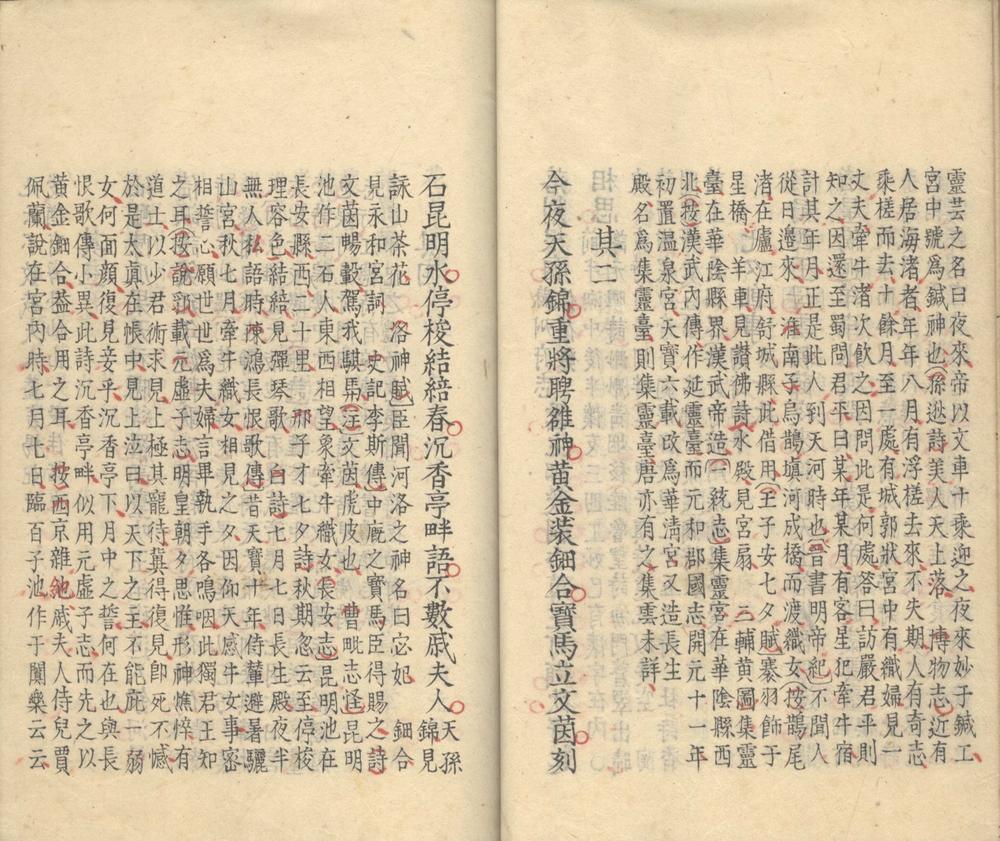 靈芸之名曰夜來帝以文車十乘迎之夜來妙于鍼工
宮中號爲鍼神也孫逖詩美人天上落 博物志近有
人居海渚者年年八月有浮槎去來不失期人有奇志
乘槎而去十餘月至一處有城郭狀宮中有織婦見一
丈夫牽牛渚次飲之因問此是何處答曰訪嚴君平則
知之因還至蜀問君平曰某年某月有客星犯牽牛宿
計其年月正是此人到天河時也晉書明帝紀不聞人
從日邊來 淮南子烏鵲填河成橋而渡織女按鵲尾
渚在廬江府舒城縣此借用王子安七夕賦褰羽飾于
星橋 羊車見讚佛詩水殿見宮扇 三輔黃圖集靈
臺在華陰縣界漢武帝造一統志集靈宮在華陰縣西
北按漢武內傳作延靈臺而元和郡國志開元十一年
初置溫泉宮天寶六載改爲華清宮又造長生
殿名爲集靈臺則集靈臺唐亦有之集雲未詳
其三
今夜天孫錦重將聘雒神黃金裝鈿合寶馬立文茵刻
石昆明水停梭結綺春沉香亭畔語不數戚夫人天孫錦見
詠山茶花 洛神賦臣聞河洛之神名曰宓妃 鈿合
見永和宮詞 史記李斯傳中廄之寶馬臣得賜之詩
文茵暢轂駕我騏馵注文茵虎皮也 曹毗志怪昆明
池作二石人東西相望象牽牛織女長安志昆明池在
長安縣西二十里 邢子才七夕詩秋期忽云至停梭
理容色結綺見彈琴歌 白詩七月七日長生殿夜半
無人私語時陳鴻長恨歌傳昔天寶十年侍輦避暑驪
山宮秋七月牽牛織女相見之夕因仰天感牛女事密
相誓心願世世爲夫婦言畢執手各嗚咽此獨君王知
之耳按說郛載元虛子志明皇朝夕思惟形神憔悴有
道士以少君術求見上極其寵待冀得復見卽死不憾
於是太眞在帳中見上泣曰以天下之主不能庇一弱
女何面顏復見妾乎沉香亭下月中之誓何在也與長
恨歌傳小異此詩沉香亭畔似用元虛子志而先之以
黃金鈿合葢合用之耳 按西京雜紀戚夫人侍兒賈
佩蘭說在宮內時七月七日臨百子池作于闐樂云云